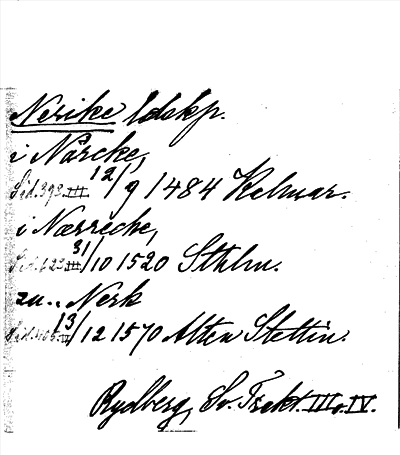 Nerike ldskp.
i Närcke,
Sid. 393 III 12/9 1484 Kalmar.
i Nærrecke,
Sid. 623 III 31/10 1520 Sthlm.
zu.. Nerk
Sid. 406 IV 13/12 1570 Alten Stettin.
Rydberg, Sv. Trakt. III o. IV.